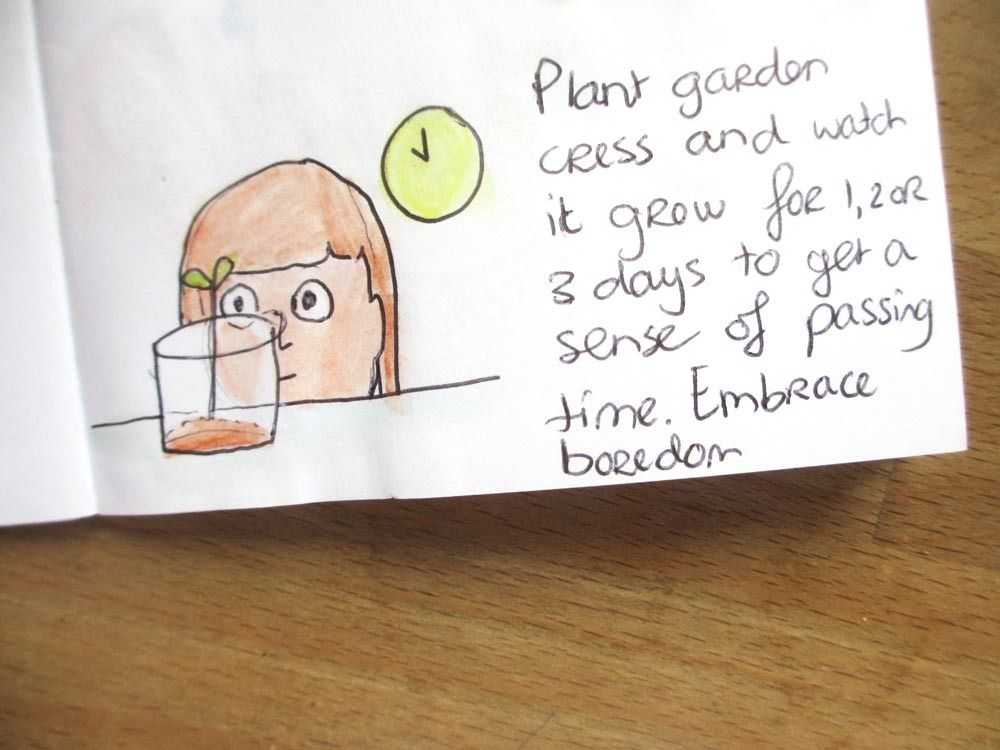 Plant garden
cress and watch
it grow for 1, 2 or
3 days to get a
sense of passing
time. Embrace
boredom